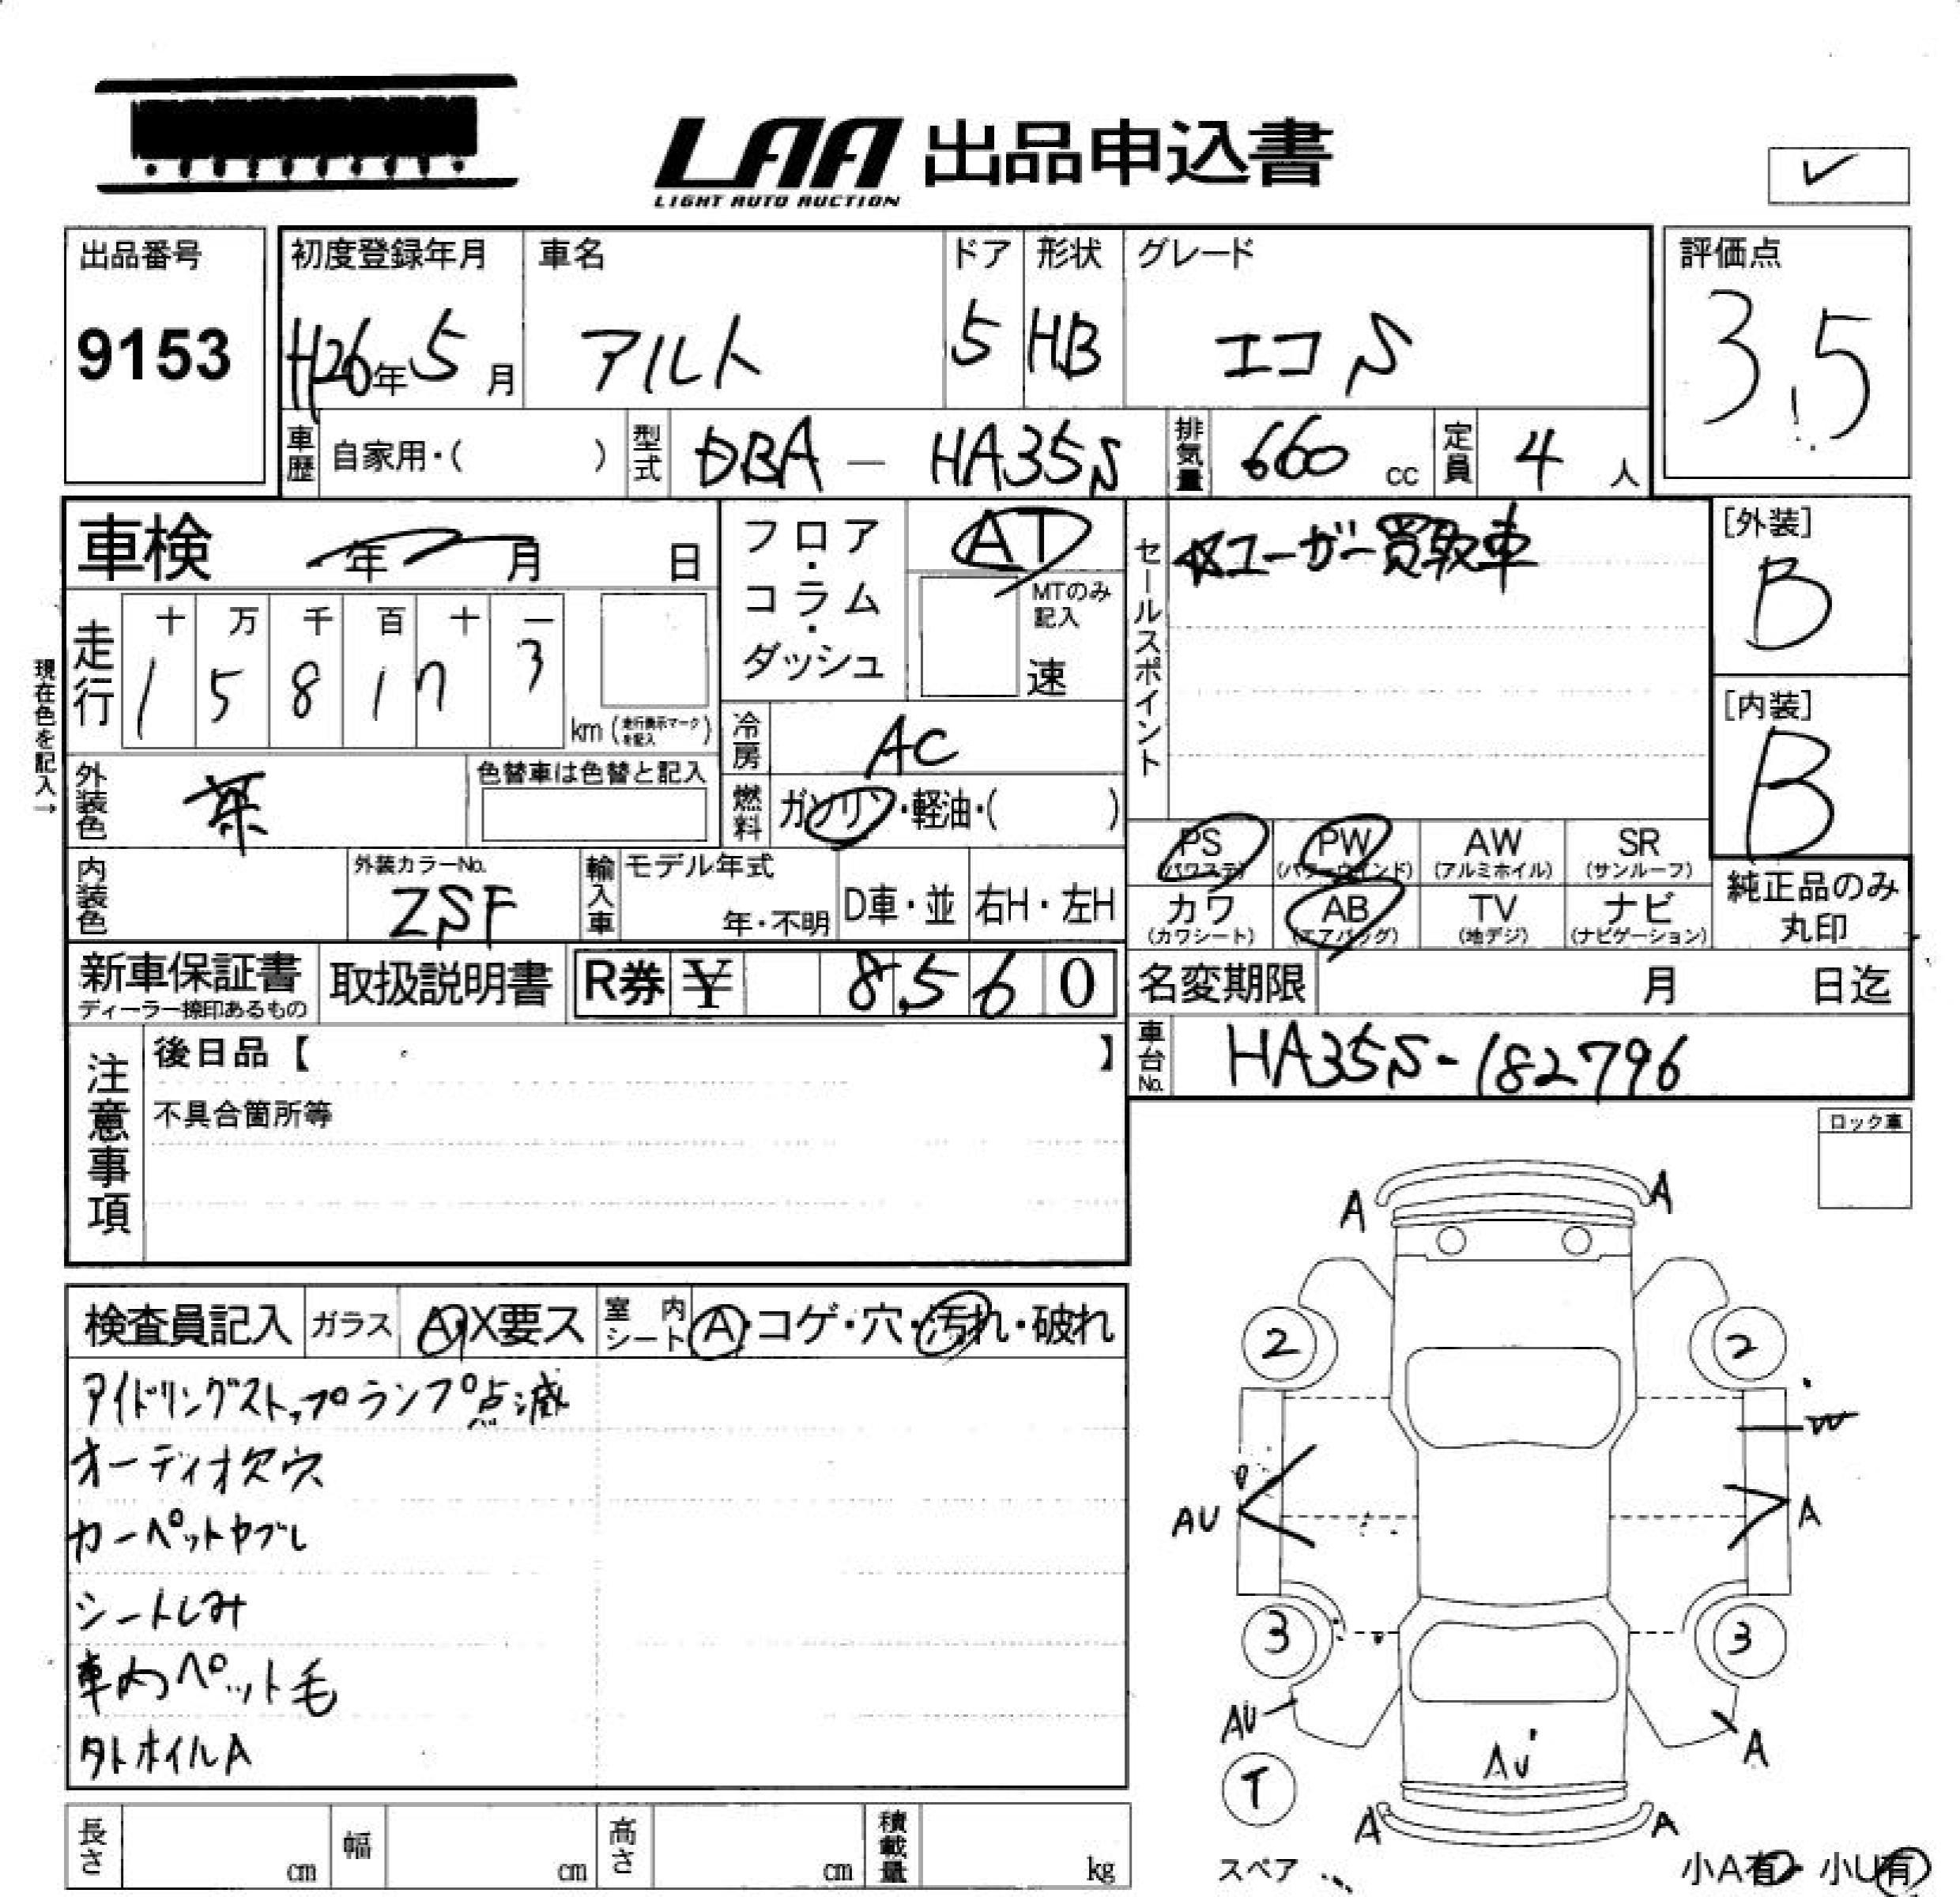 LAA 出品申込書
LIGHT AUTO AUCTION
出品番号
9153
初度登録年月
H26年5月
車名
アルト
ドア
5
形状
HB
グレード
エコS
評価点
3.5
車歴 自家用・( )
型式 DBA - HA35S
排気量 660 cc
定員 4 人
車検 年 月 日
フロア・コラム・ダッシュ
AT
MTのみ記入
速
セールスポイント
☆ユーザー買取車
[外装]
B
[内装]
B
現在色を記入→
走行
十 万 千 百 十 一
1 5 8 1 7 3
km (走行表示マークを記入)
冷房 AC
燃料 ガソリン・軽油・( )
外装色 茶
色替車は色替と記入
内装色
外装カラーNo.
ZSF
輸入車
モデル年式
年・不明
D車・並
右H・左H
PS (パワステ)
PW (パワーウインド)
AW (アルミホイル)
SR (サンルーフ)
カワ (カワシート)
AB (エアバッグ)
TV (地デジ)
ナビ (ナビゲーション)
純正品のみ丸印
新車保証書
ディーラー捺印あるもの
取扱説明書
R券 ¥ 8,560
名変期限 月 日迄
車台No. HA35S-182796
注意事項
後日品【 】
不具合箇所等
ロック車
検査員記入
ガラス A・X要ス
室内シート A・コゲ・穴・汚れ・破れ
アイドリングストップランプ点滅
オーディオ欠穴
カーペットヤブレ
シートしみ
車内ペット毛
タトホイルA
A A
2 2
W
AU A
3 3
AU A
AU
T
A A
スペア
小A有・小U有
長さ cm
幅 cm
高さ cm
積載量 kg